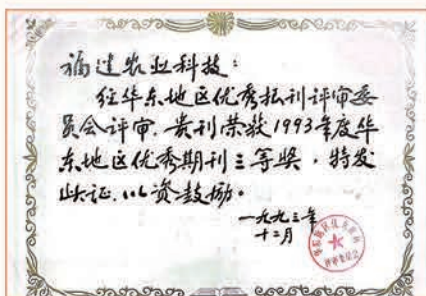 福建农业科技：
经华东地区优秀期刊评审委
员会评审，贵刊荣获1993年度华
东地区优秀期刊三等奖，特发
此证，以资鼓励。
一九九三年
十二月